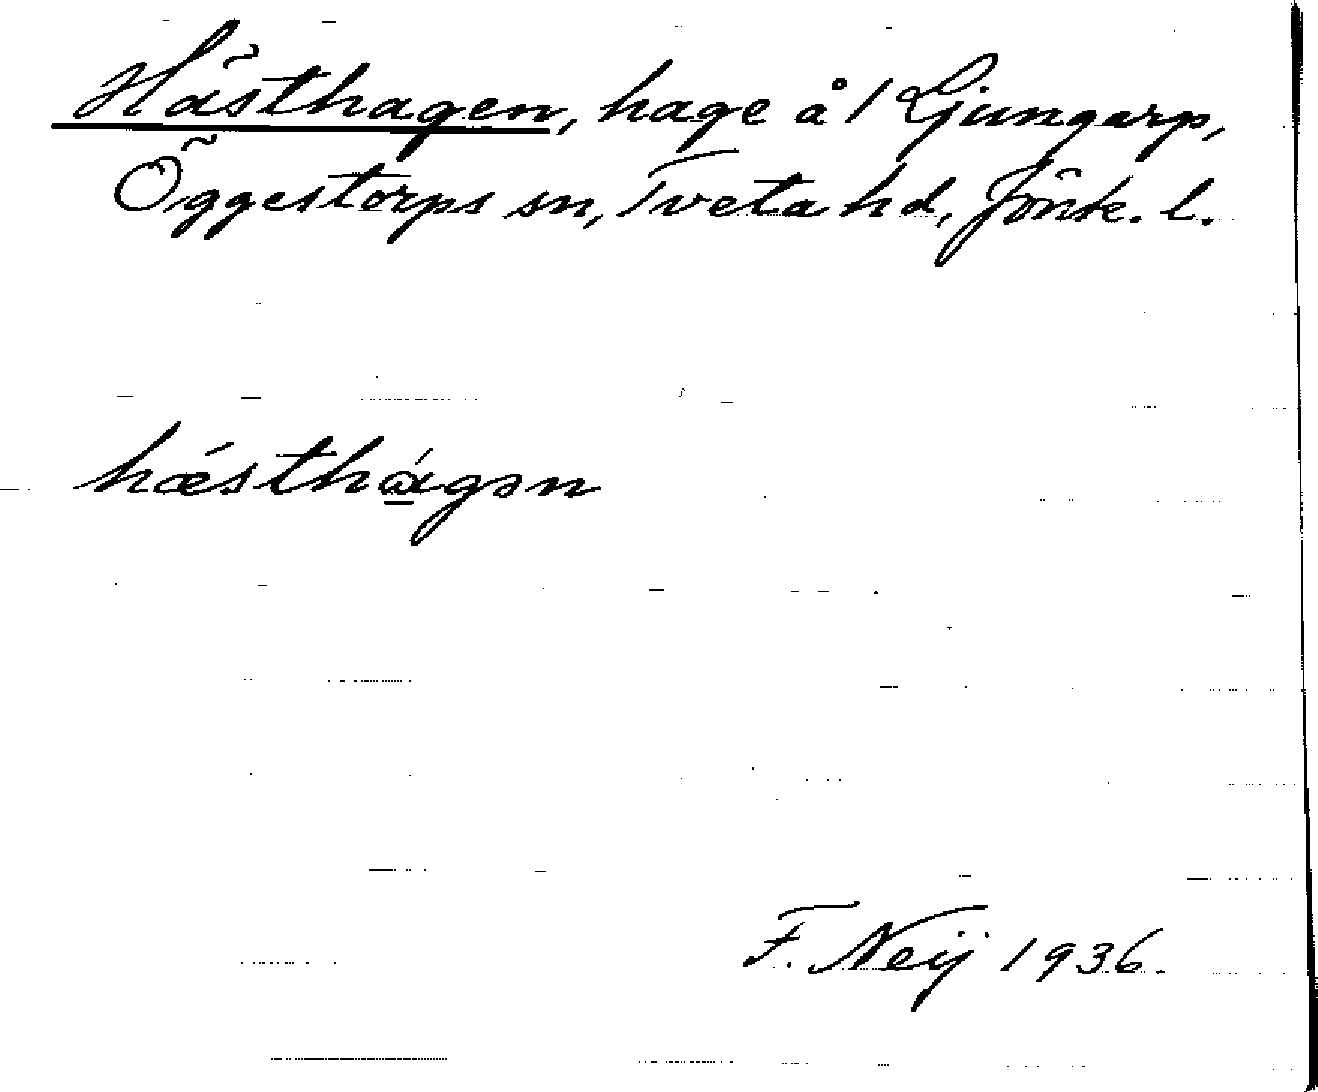 Hästhagen, hage å 1 Ljungarp,
Öggestorps sn, Tveta hd, Jönk. l.
hǽsthɑ̱́gən
F. Neij 1936.